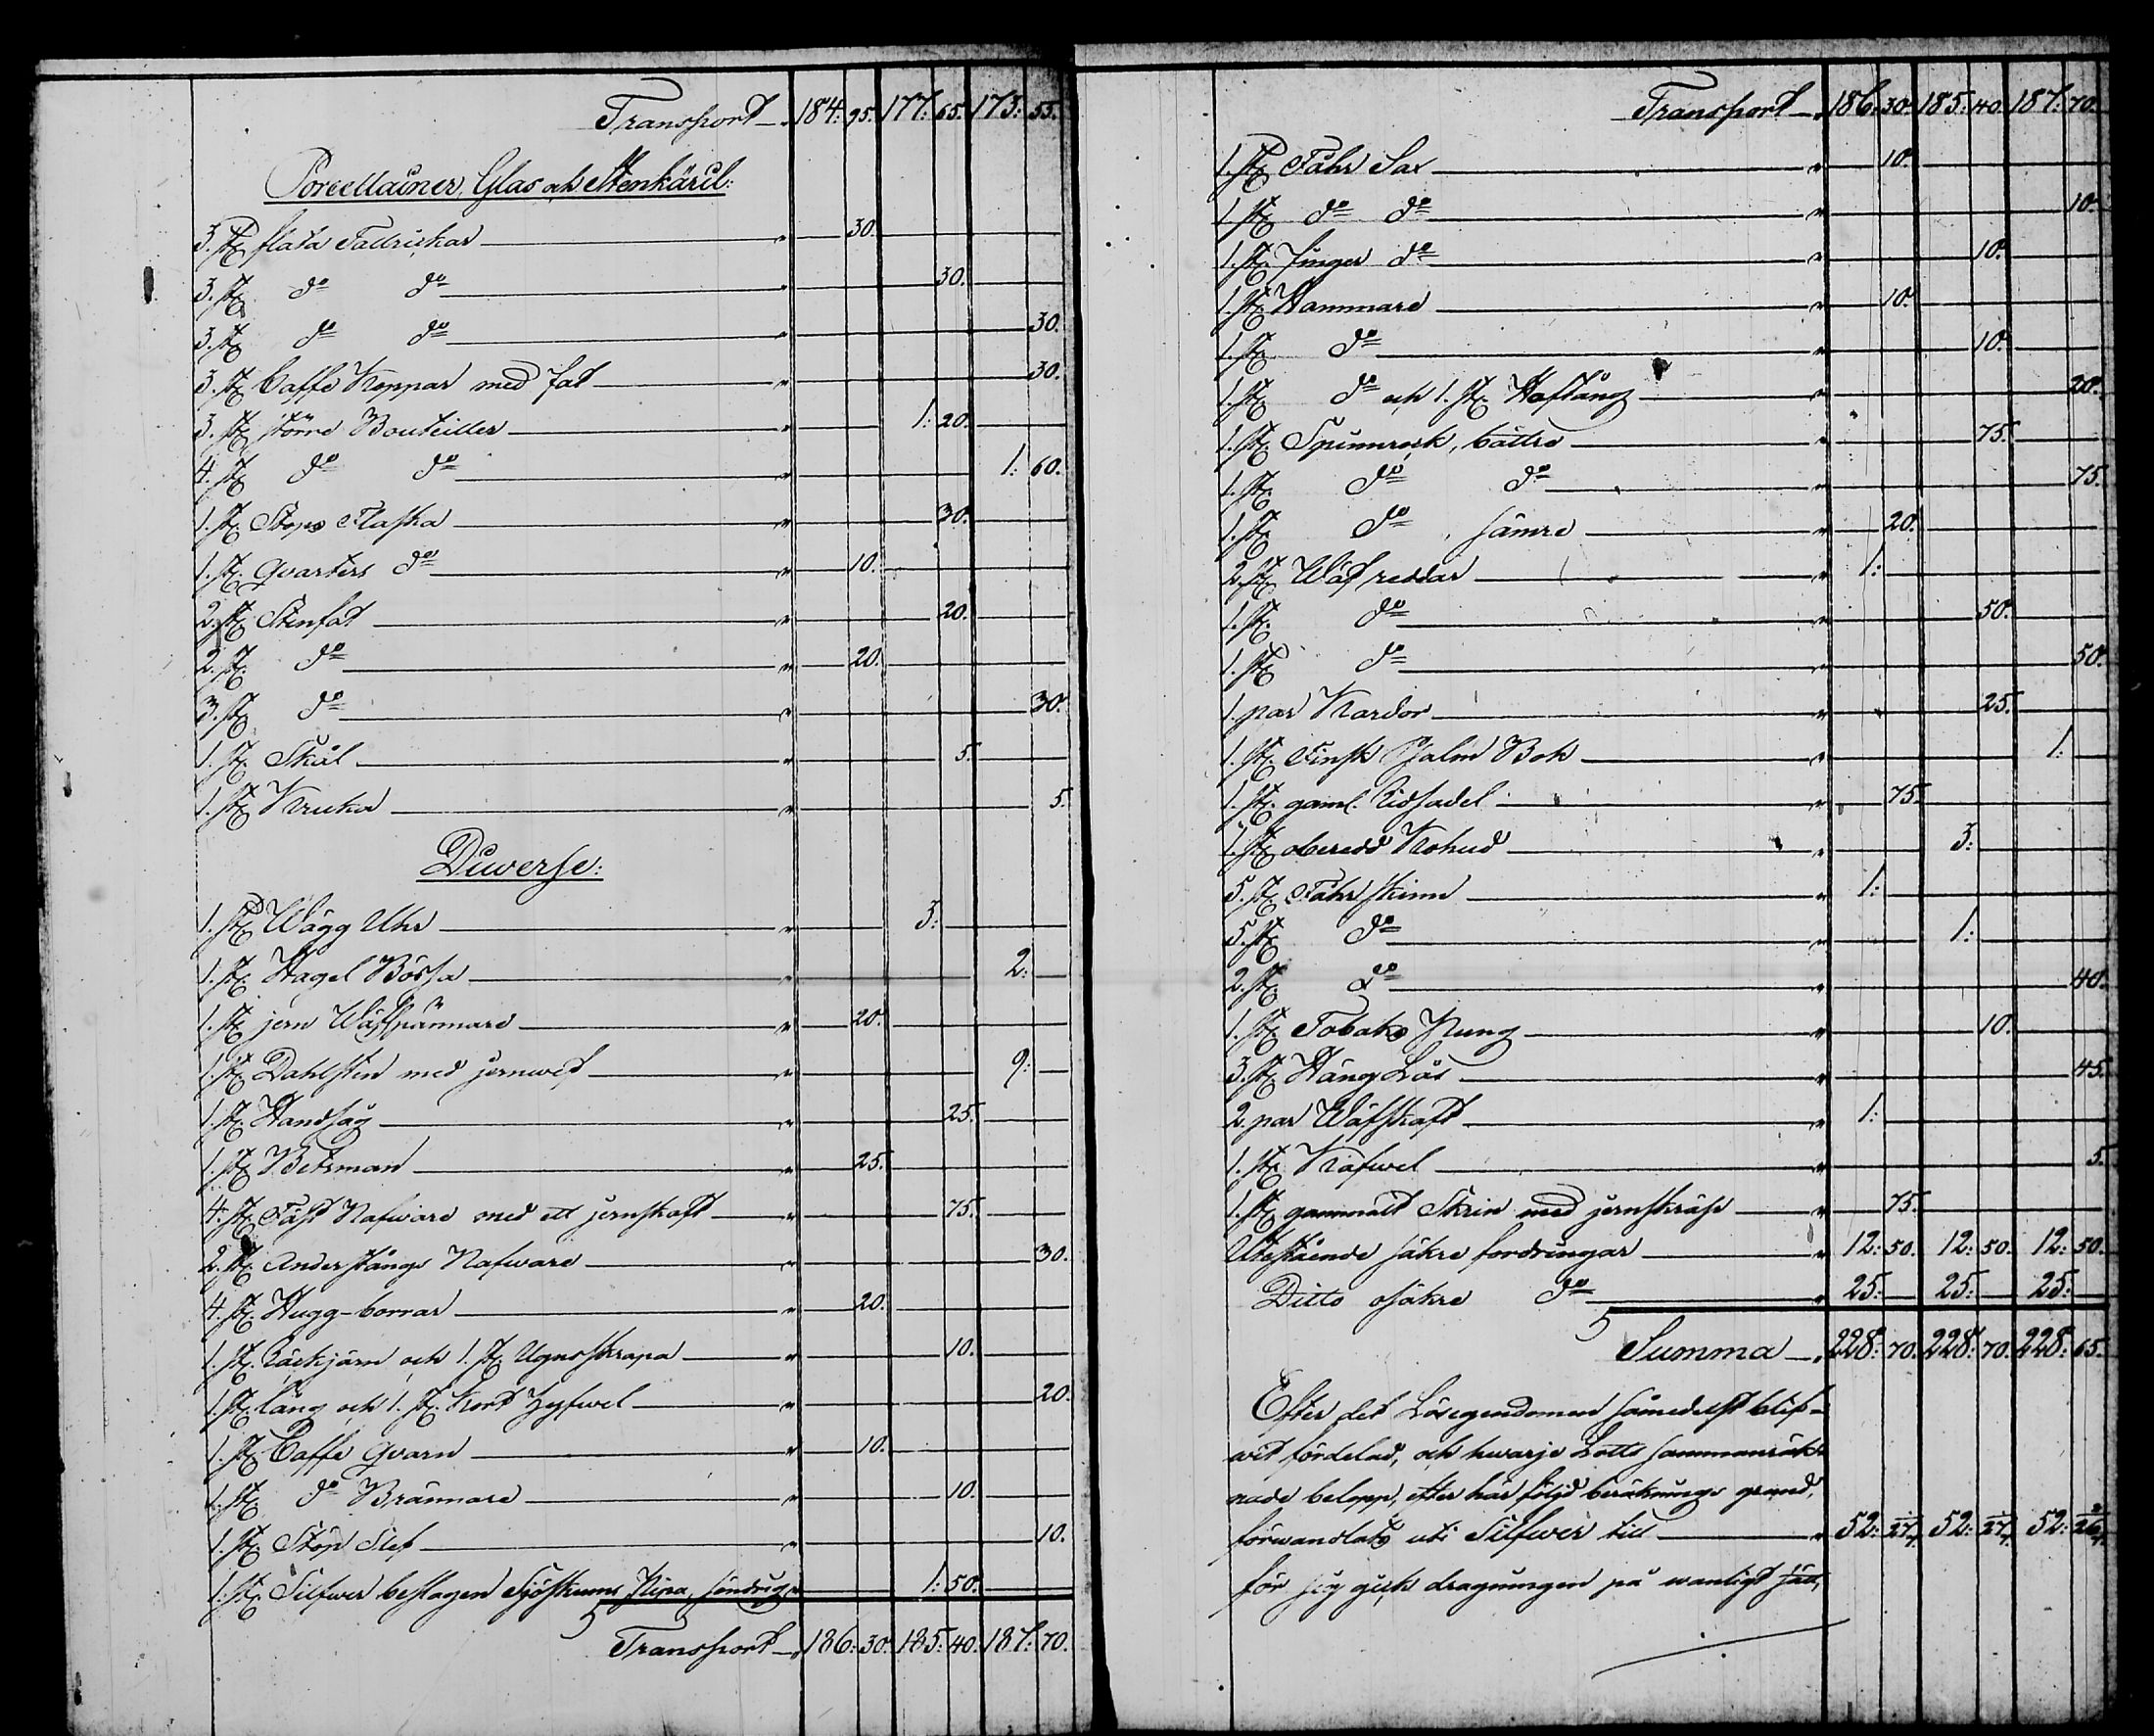 Transport 184: 95. 177: 65. 173: 55.
Porcellainer, Glas och Stenkäril:
3. st. flata Tallrickar 30.
3. st. do do 30.
3. st. do do 30.
3. st. Caffe Koppar med fat 30.
3. st. större Bouteiller 1: 20.
4. st. do do 1: 60.
1. st. Stops Flaska 30.
1. st. Qvarters do 10.
2. st. Stenfat 20.
2. st. do 20.
3. st. do 30.
1. st. Skål 5.
1. st. Kruka 5.
Diverse:
1. st. Wägg Uhr 3:
1. st. Hagel Bössa 2:
1. st. jern Wäfspännare 20.
1. st. Dahlsten med jernwef 9:
1. st. Handsåg 25.
1. st. Betsman 25.
4. st. Fäst Nafware med ett jernskaft 75.
2. st. Anderstångs Nafware 30.
4. st. Hugg-borrar 20.
1. st. Räckjärn och 1. st. Ugnsskrapa 10.
1. st. lång och 1. st. kort Hyfwel 20.
1. st. Caffe Qvarn 10.
1. st. do Brännare 10.
1. st. Stöp Slef 10.
1. st. Silfwer beslagen Sjöskums Pipa, söndrig 1: 50.
Transport 186: 30. 185: 40. 187: 70.
Transport 186: 30. 185: 40. 187: 70.
1. st. Fåhr Sax 10.
1. st. do do 10.
1. st. finger do 10.
1. st. Hammare 10.
1. st. do 10.
1. st. do och 1. st. Hoftång 20.
1. st. Spinnrock, bättre 75.
1. st. do do 75.
1. st. do sämre 20.
2. st. Wäfskedar 1:
1. st. do 50.
1. st. do 50.
1. par Kardor 25.
1. st. Finsk Psalm Bok 1:
1. st. gaml. Ridsadel 75.
1. st. oberedd Kohud 3:
5. st. Fåhr skinn 1:
5. st. do 1:
2. st. do 40.
1. st. Tobaks Pung 10.
3. st. Häng Lås 45.
2. par Wäfskaft 1:
1. st. Kafwel 5.
1. st. gammalt Skrin med jernskråf 75.
Utestående säkre fordringar 12: 50. 12: 50. 12: 50.
Ditto osäkre do 25: 25: 25:
Summa 228: 70. 228: 70. 228: 65.
Efter det Lösegendomen såmedelst blif-
wit fördelad, och hwarje Lotts sammanräk-
nade belopp, efter här följd beräknings grund,
förwandlats uti Silfwer till 52: 27 52: 27 52: 26
för sig gick dragningen på wanligt sätt,